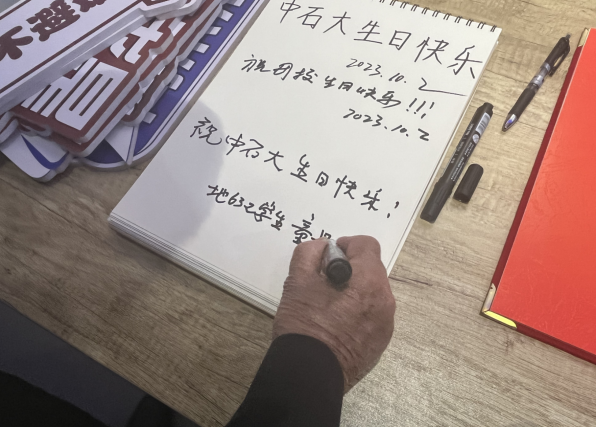 中石大生日快乐
2023.10.2
祝母校生日快乐!!!
2023.10.2
祝中石大生日快乐!
地632学生 童